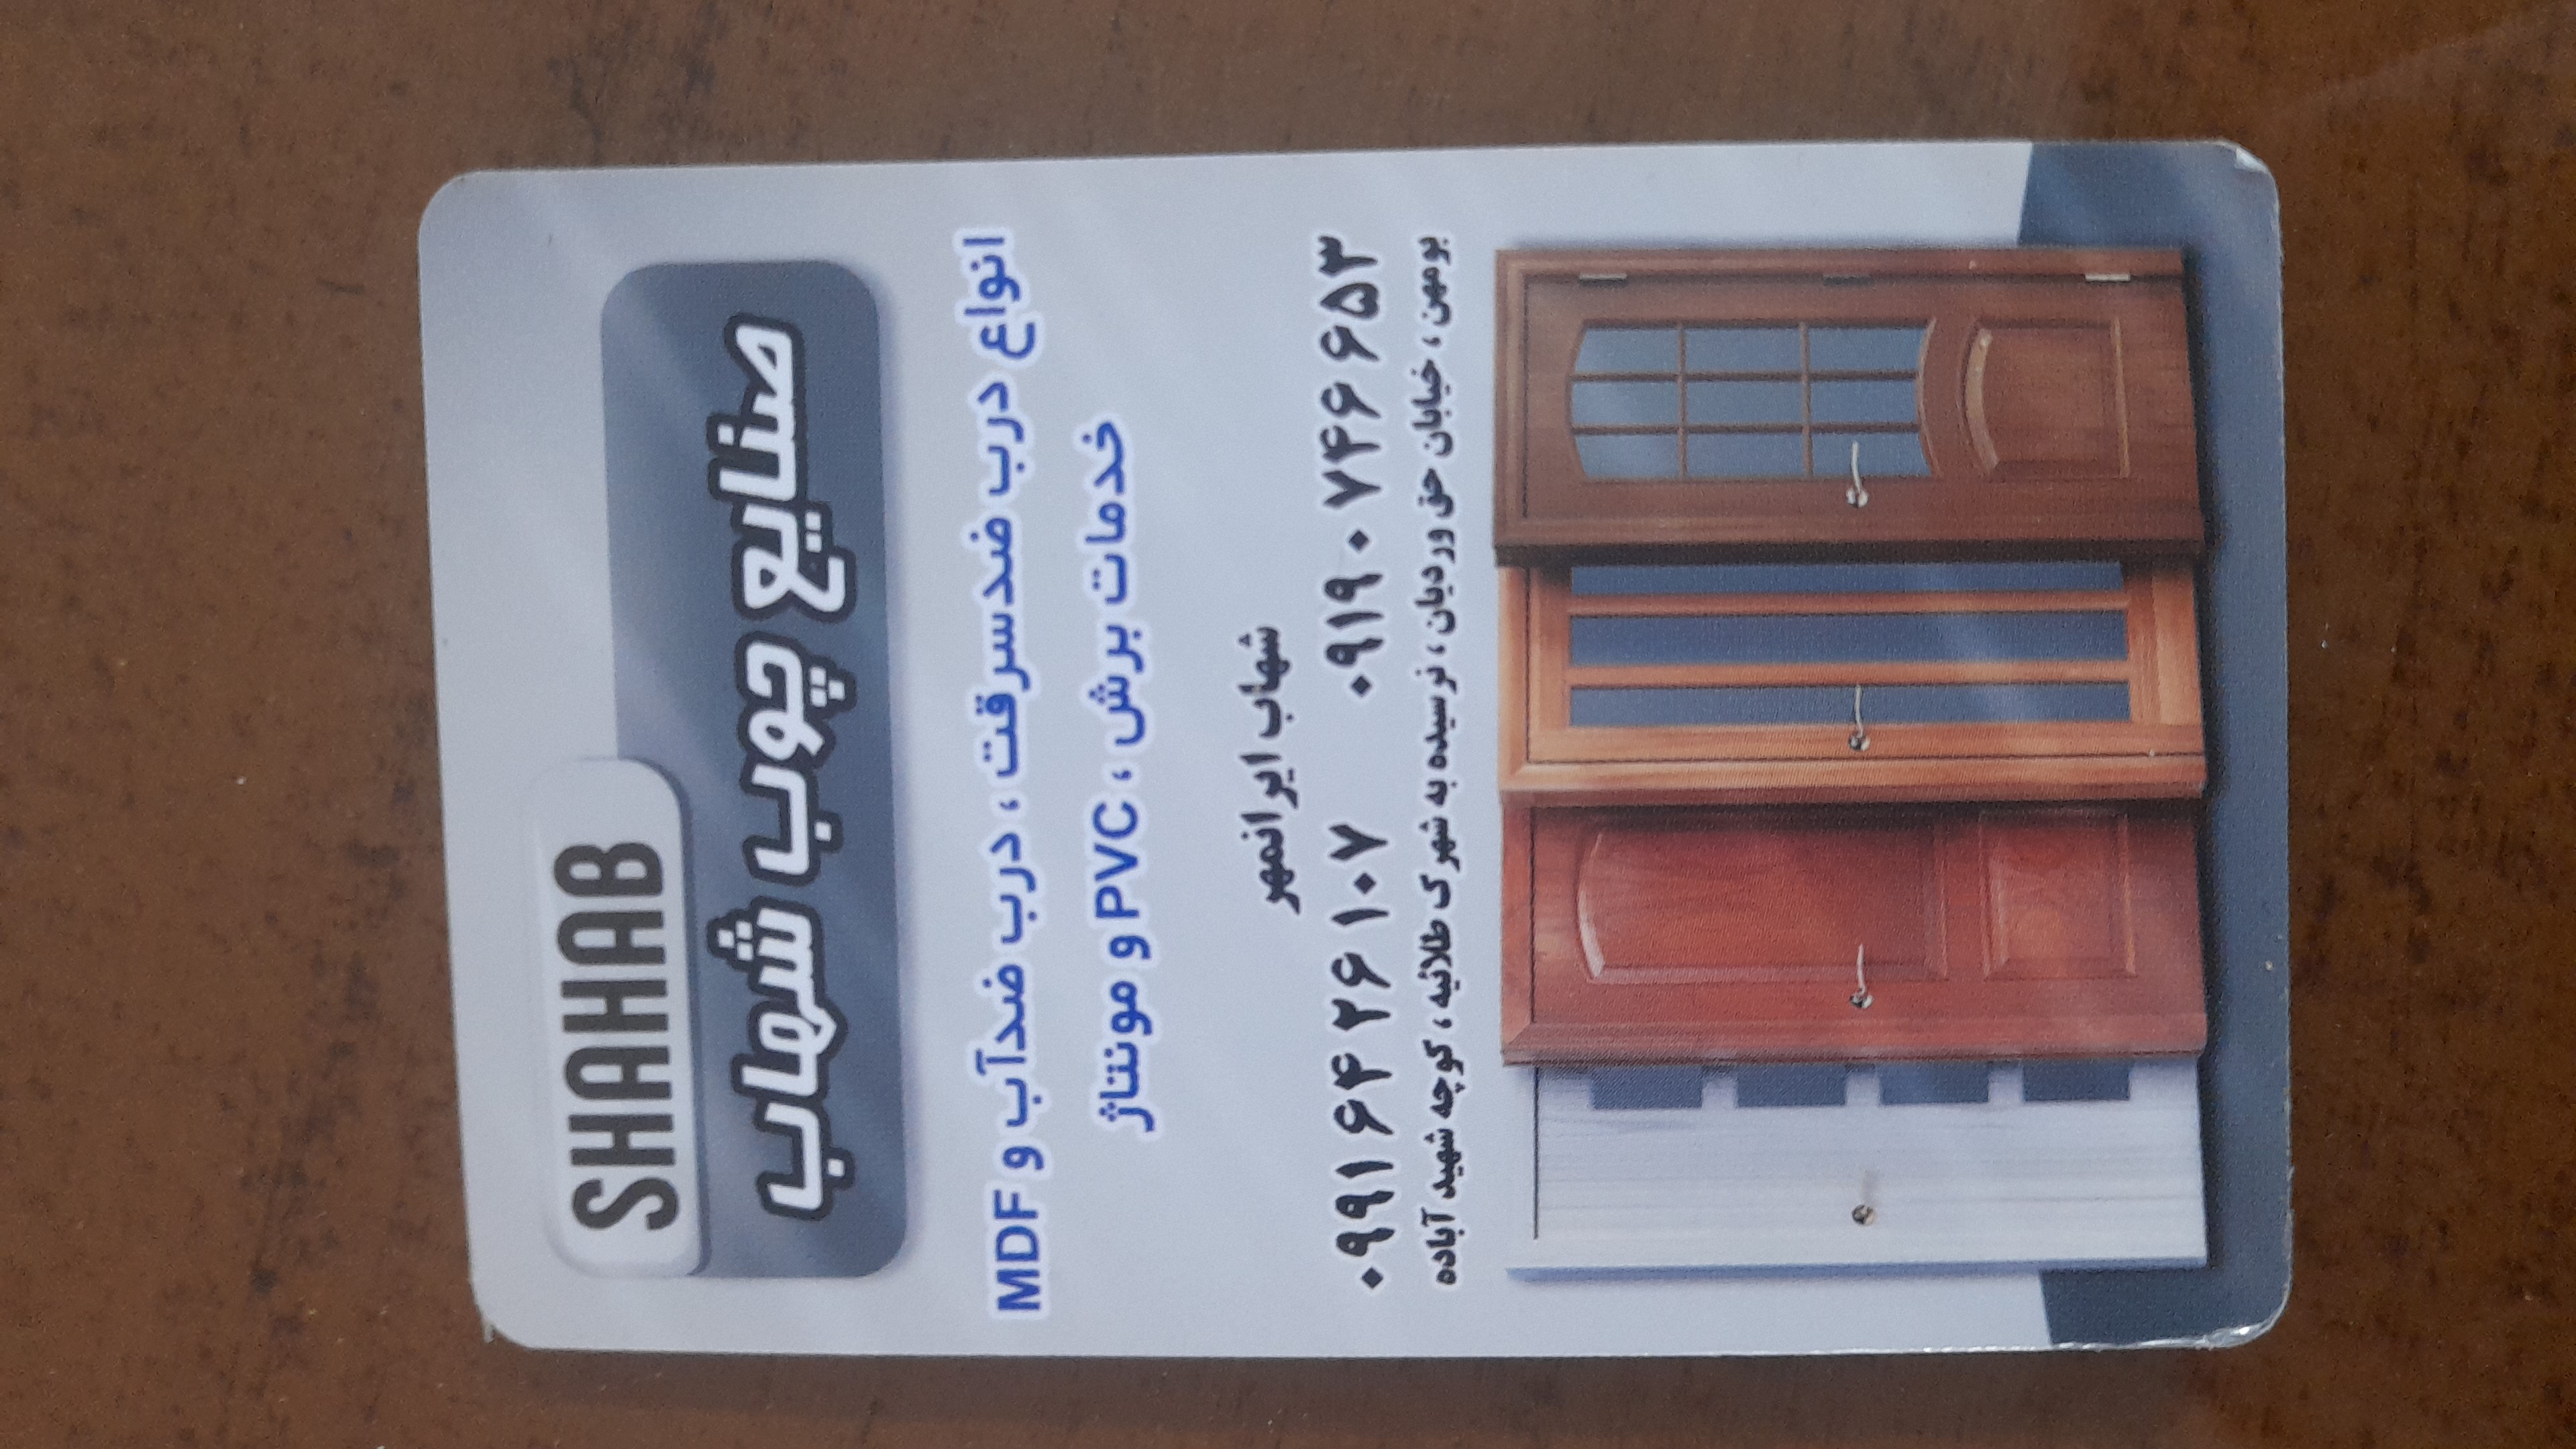 SHAHAB
صنایع چوب شهاب
انواع درب ضدسرقت ، درب ضدآب و MDF
خدمات برش ، PVC و مونتاژ
شهاب ایرانمهر
۰۹۹۱۶۴۲۶۱۰۷ ۰۹۱۹۰۷۴۶۶۵۳
بومهن ، خیابان حق وردیان ، نرسیده به شهرک طلائیه ، کوچه شهید آباده